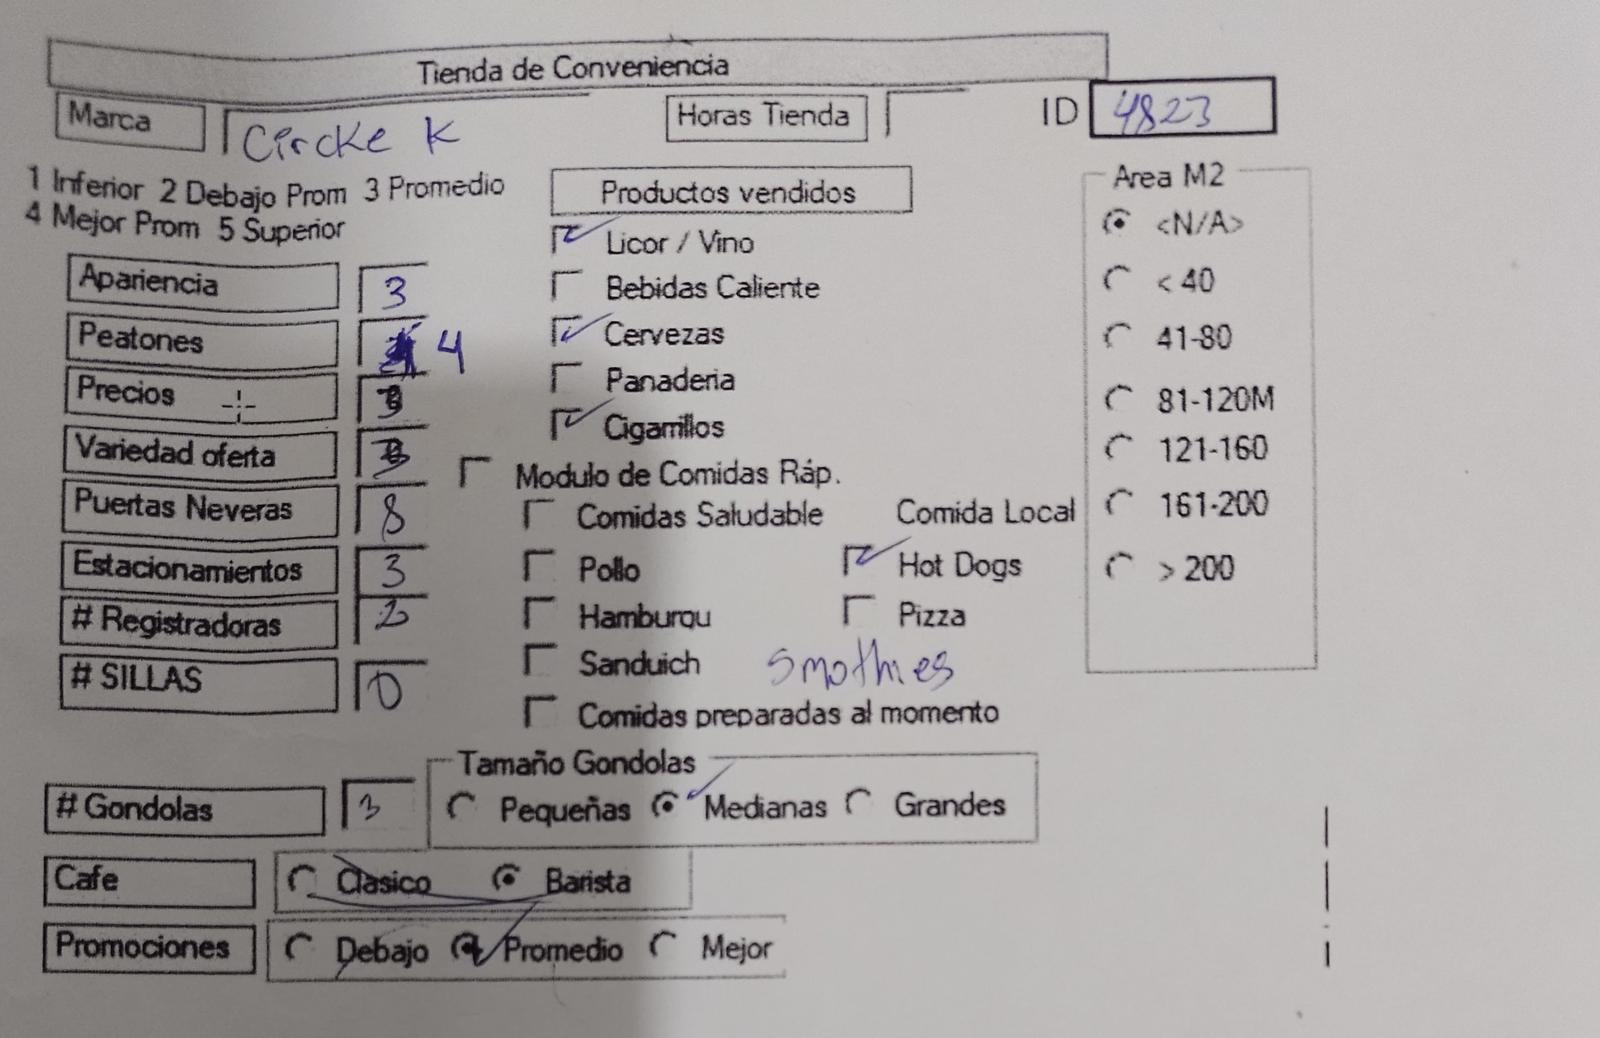 Tienda de Conveniencia
Marca Circke K Horas Tienda ID 4823
1 Inferior 2 Debajo Prom 3 Promedio
4 Mejor Prom 5 Superior
Productos vendidos
Licor / Vino
Bebidas Caliente
Cervezas
Panaderia
Cigarrillos
Apariencia 3
Peatones 4
Precios 3
Variedad oferta 3
Puertas Neveras 8
Estacionamientos 3
# Registradoras 2
# SILLAS 0
Modulo de Comidas Ráp.
Comidas Saludable Comida Local
Pollo Hot Dogs
Hamburqu Pizza
Sanduich Smothies
Comidas preparadas al momento
Area M2
<N/A>
< 40
41-80
81-120M
121-160
161-200
> 200
Tamaño Gondolas
# Gondolas 3 Pequeñas Medianas Grandes
Cafe Clasico Barista
Promociones Debajo Promedio Mejor